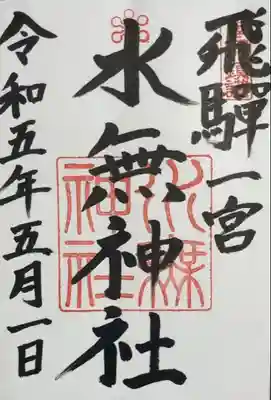 飛騨一宮
水無神社
令和五年五月一日
水無
神社